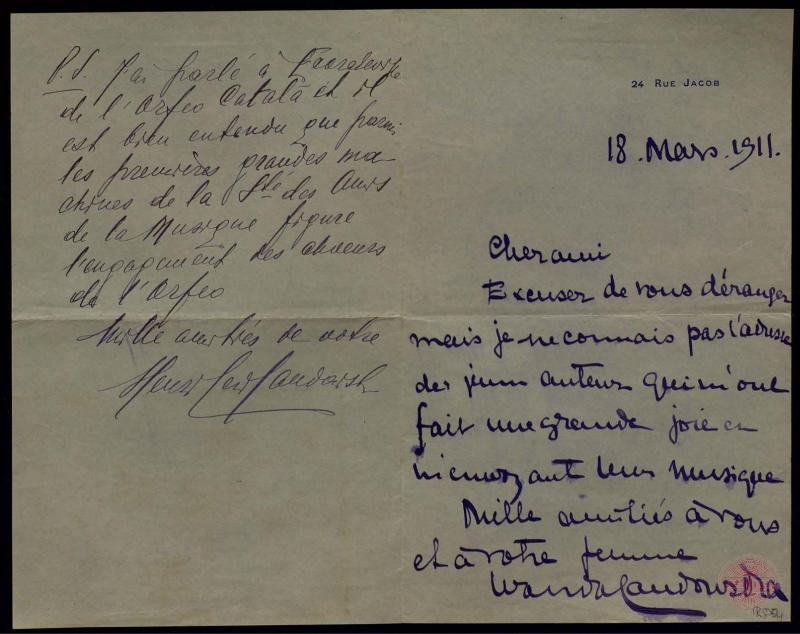 24 RUE JACOB
18. Mars. 1911.
Cher ami
Excuser de vous déranger
mais je ne connais pas l'adresse
des jeun auteurs qui m'ont
fait une grande joie en
m'envoyant leur musique
Mille amitiés à vous
et à votre femme
Wanda Landowska
P.S. J'ai parlé à
de l'Orfeo Català et il
est bien entendu que parmi
les premières grandes ma
chines de la Sté des Amis
de la Musique figure
l'engagement des choeurs
de l'Orfeo
Mille amitiés de votre
Henri Lew Landowski